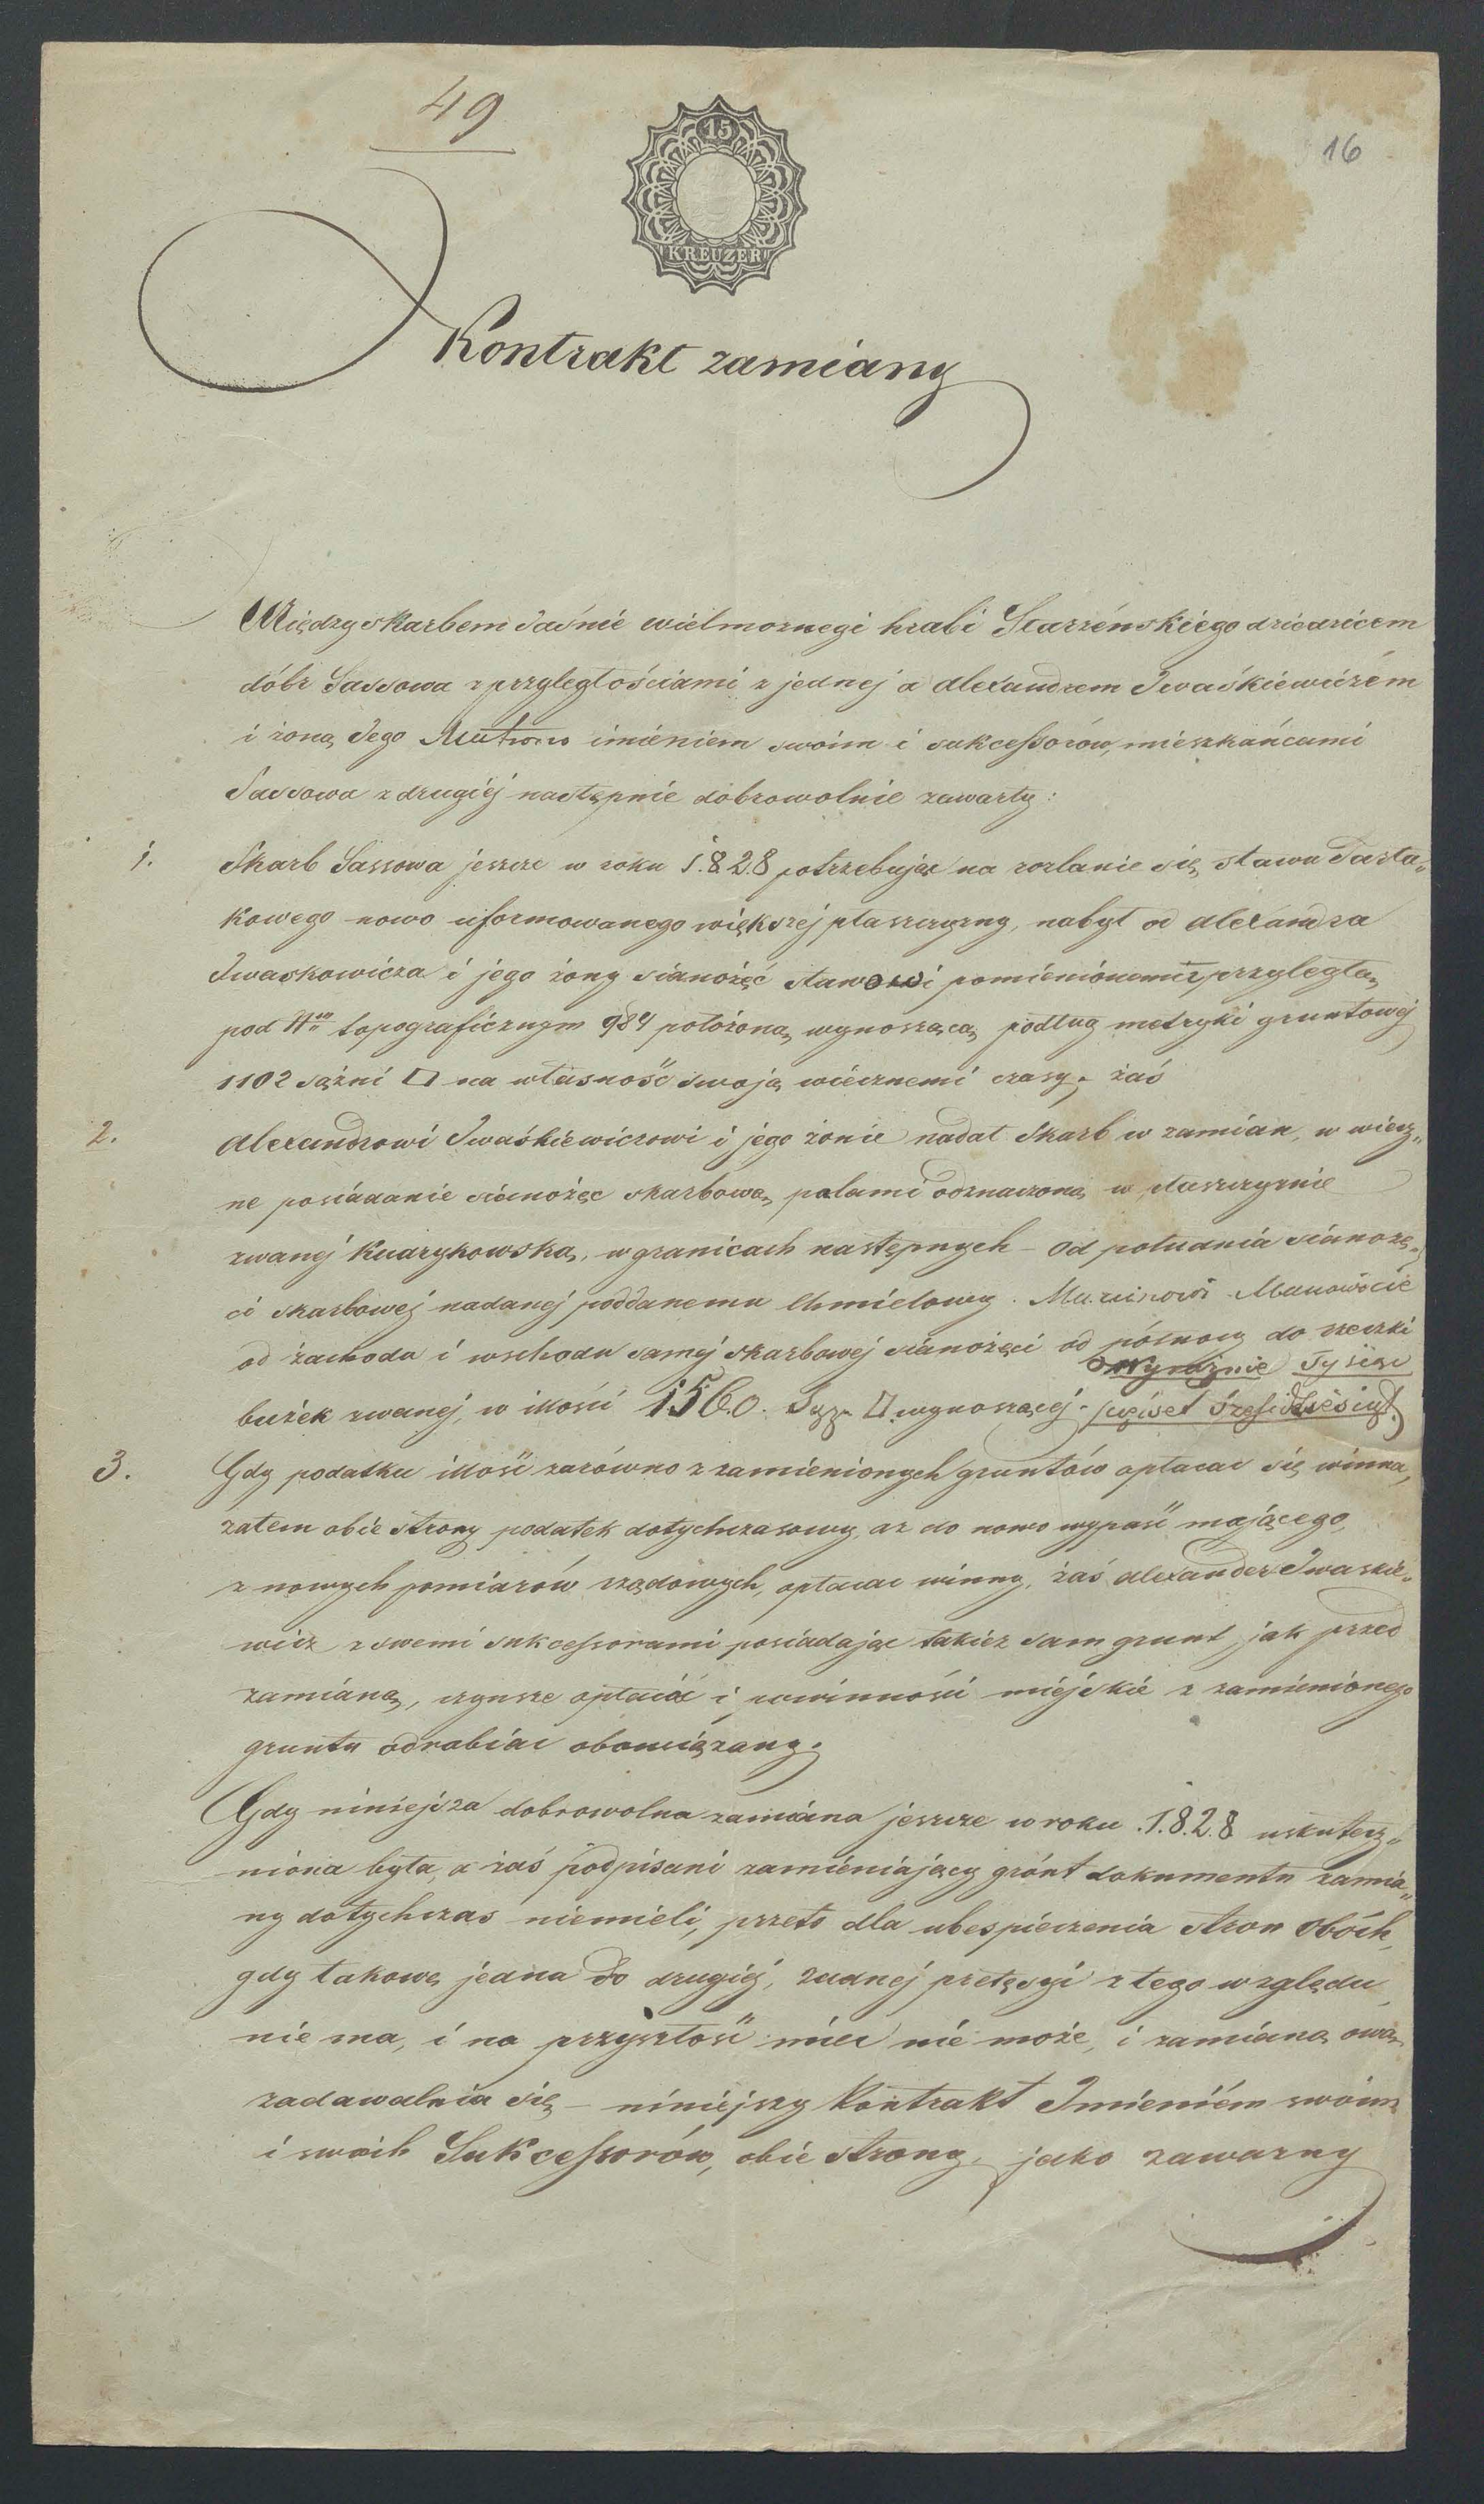 49
16
15
KREUZER
Kontrakt zamiany
Między skarbem Jaśnie wielmoznegi hrabi Starzénskiego dziedzicem
dóbr Sassowa z przyległościami z jednej a Alexandrem Iwaśkiewiczém
i żoną Jego imieniem swoim i sukcessorów, mieszkańcami
Sassowa z drugiéj następnie dobrowolnie zawarty:
1. Skarb Sassowa jeszcze w roku 1828 potrzebując na rozlanie się stawu Tarta„
kowego nowo uformowanego większej płaszczyzny, nabył od Alexandra
Iwaskowicza i jego żony sianożęć stawowi pomienionemu przyległą
pod Nro topograficznym 984 położoną wynoszącą podług metryki gruntowej
1102 sążni □ na własność swoją wiecznemi czasy, zaś
2. Alexandrowi Iwaśkiewiczowi i jego żonie nadał Skarb w zamian, w wiecz„
ne posiadanie sianożęć skarbową, palami odznaczoną w płaszczyznie
zwanej w granicach następnych – od południa sianożę„
ci skarbowej nadanej poddanemu
od zachodu i wschodu samej skarbowej sianożęci od północy do rzeczki
wyraźnie Tysiąc
bużek zwanej, w ilości 1560. Sąż. □ wynoszącej. pięcset sześćdziesiąt.)
3. Gdy podatku illość zarówno z zamienionych gruntów opłacac się winna,
zatem obie strony podatek dotychczasowy, az do nowo wypaść mającego,
z nowych pomiarów rządowych, opłacac winny, zaś Alexander Iwaskie„
wicz z swemi sukcessorami posiadając takiez sam grunt, jak przed
zamianą, czynsze opłacać i powinności miéjskie z zamienionego
gruntu odrabiac obowiązany.
Gdy niniejsza dobrowolna zamiana jeszcze w roku .1.8.2.8 uskutecz„
niona była, a zaś podpisani zamieniający grónt dokumentu zamia„
ny dotychczas niemieli, przeto dla ubespieczenia stron obóch,
gdy takowe jedna do drugiéj, żadnej pretęsyi z tego względu
nie ma, i na przyszłość mieć nie może, i zamianą ową
zadawalnia się – niniejszy Kontrakt Imieniém swóim
i swoich Sukcessorów, obie strony, jako zawarny